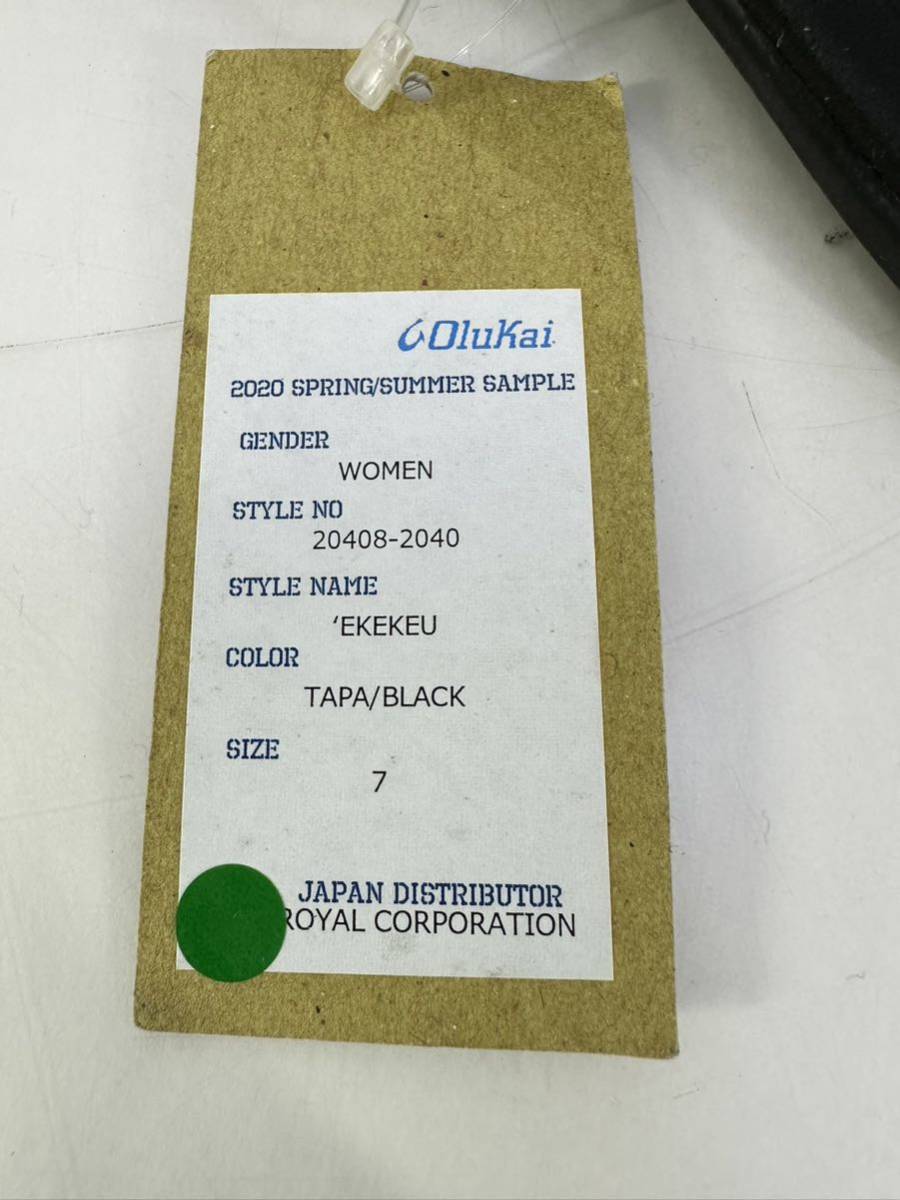 OluKai
2020 SPRING/SUMMER SAMPLE
GENDER
WOMEN
STYLE NO
20408-2040
STYLE NAME
‘EKEKEU
COLOR
TAPA/BLACK
SIZE
7
JAPAN DISTRIBUTOR
ROYAL CORPORATION